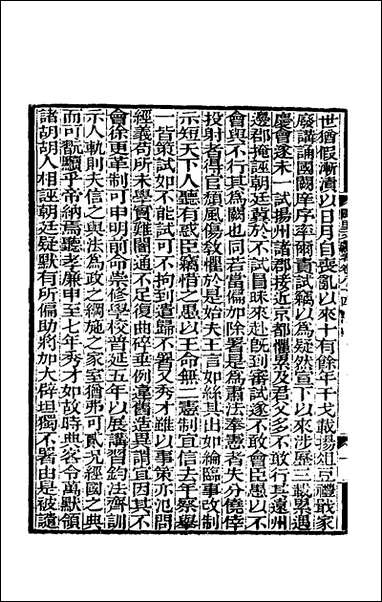 世猶假漸漬以日月自喪亂以來十有餘年干戈載揚俎豆禮戢家
廢講誦國闕庠序率爾責試竊以為疑然宣下以來涉歷三載累遇
慶會遂未一試揚州諸郡接近京都懼累及君父多不敢行其遠州
邊郡掩誣朝廷冀於不試冒昧來赴既到審試遂不敢會臣愚以不
會與不行其為闕也同若當偏加除署是為肅法奉憲者失分僥倖
投射者得官頹風傷教懼於是始夫王言如絲其出如綸臨事改制
示短天下人聽有惑臣竊惜之愚以王命無二憲制宜信去年察舉
一皆策試如不能試可不拘到遣歸不署又秀才雖以事策亦氾問
經義苟所未學實難闇通不足復曲碎垂例違舊造異謂宜因其不
會徐更革制可申明前命崇修學校普延五年以展講習鈞法齊訓
示人軌則夫信之與法為政之綱施之家室猶弗可貳況經國之典
而可翫黷乎帝納焉聽孝廉申至七年秀才如故時典客令萬默領
諸胡胡人相誣朝廷疑默有所偏助將加大辟坦獨不署由是被譴